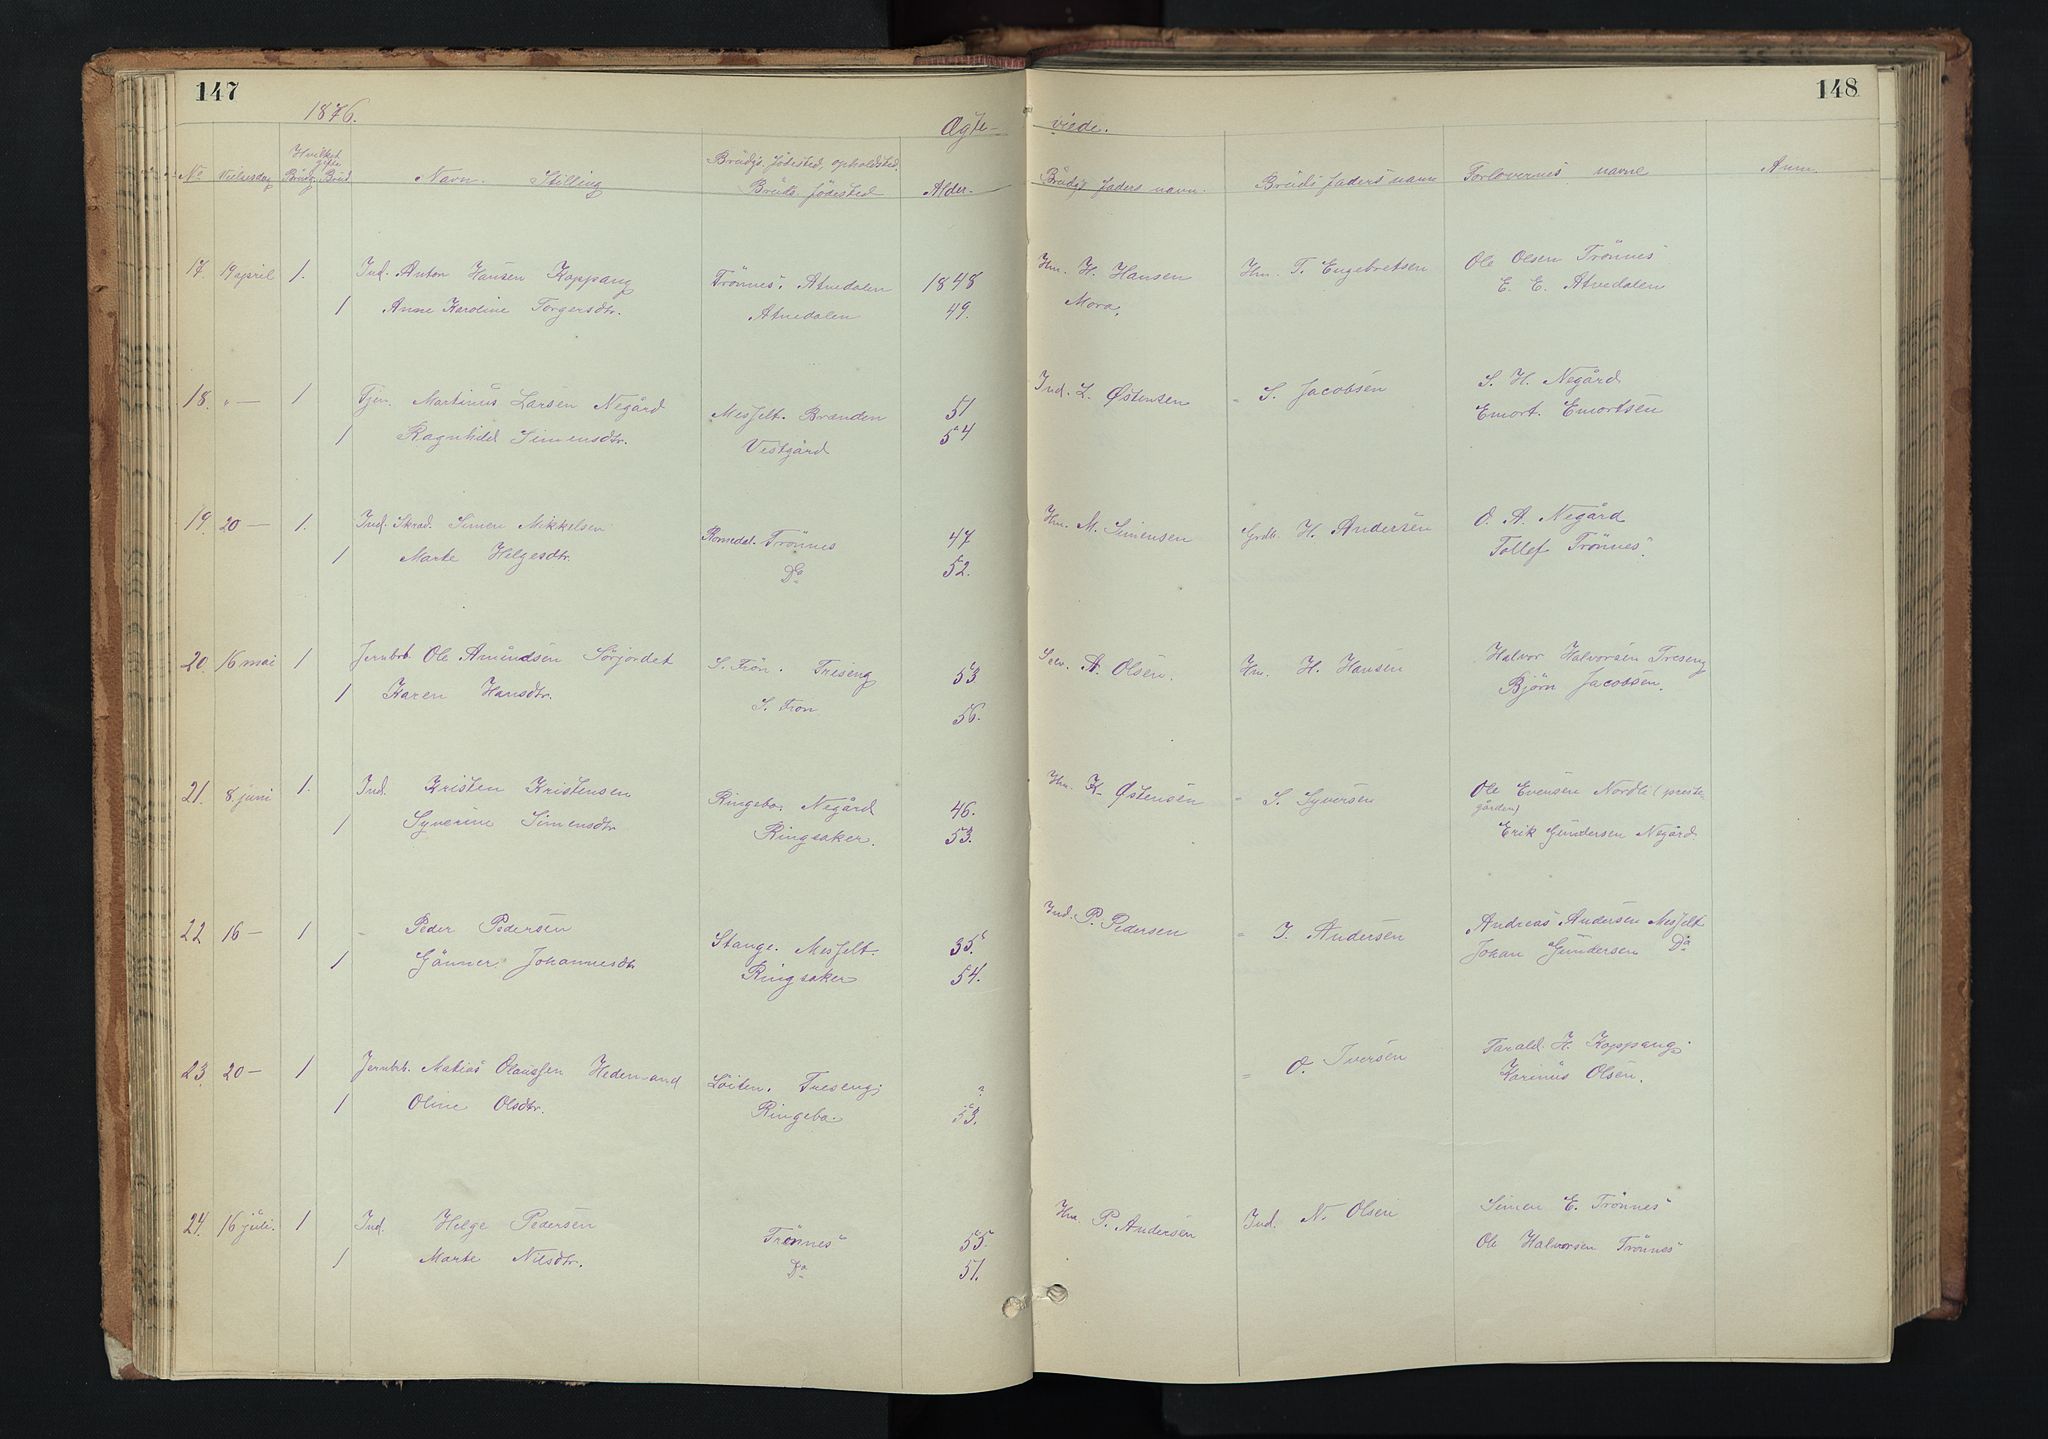 147
148
1876.
Ægte-
viede.
No Vielsesdag Hvilket gifte Brudg. Brud. Navn. Stilling Brudgs. fødested, opholdsted. Bruds fødested Alder.
Brudgs faders navn. Bruds faders navn Forlovernes navne Anm.
17. 19 april 1. Ind. Anton Hansen Koppang Trönnes, Atnedalen 1848 Hm. H. Hansen Hm. T. Engebretsen Ole Olsen Trönnes
1 Anne Karoline Torgersdtr. Atnedalen 49. Mora, E. E. Atnedalen
18. " — 1 Tjen. Martinus Larsen Negård Mesfelt. Brænden 51 Ind. L. Østensen " S. Jacobsen S. H. Negård
1 Ragnhild Simensdtr. Vestgård 54 Emort. Emortsen
19. 20 — 1. Ind. Skrad. Simen Mikkelsen Romedal. Trönnes 47 Hm. M. Simensen Grdb. H. Andersen O. A. Negård
1 Marte Helgesdtr. Do 52. Tollef Trönnes.
20. 16 mai 1 Jernbrb. Ole Amundsen Sörjordet S. Fron. Treseng 53 Selv. A. Olsen. Hm. H. Hansen Halvor Halvorsen Treseng
1 Karen Hansdtr. S. Fron 56. Björn Jacobsen.
21. 8. juni 1. Ind. Kristen Kristensen Ringebo, Negård 46. Hm. K. Østensen " S. Syversen Ole Evensen Nordli (preste-
gården)
1 Syverine Simensdtr Ringsaker. 53. Erik Gundersen Negård
22 16 — 1 " Peder Pedersen Stange. Mesfelt. 55. Ind. P. Pedersen " J. Andersen Andreas Andersen Mesfelt
1 Gunner Johannesdtr Ringsaker 54. Johan Gundersen Do
23. 20 — 1 Jernbrb. Matias Olaussen Hedemand Löiten. Treseng; ? " O. Iversen Tarald. H. Koppang;
1 Oline Olsdtr. Ringebo. 53. Karinus Olsen.
24. 16 juli. 1 Ind. Helge Pedersen Trönnes 55. Hm. P. Andersen Ind. N. Olsen Simen E. Trönnes
1 Marte Nilsdtr. Do 51. Ole Halvorsen Trönnes